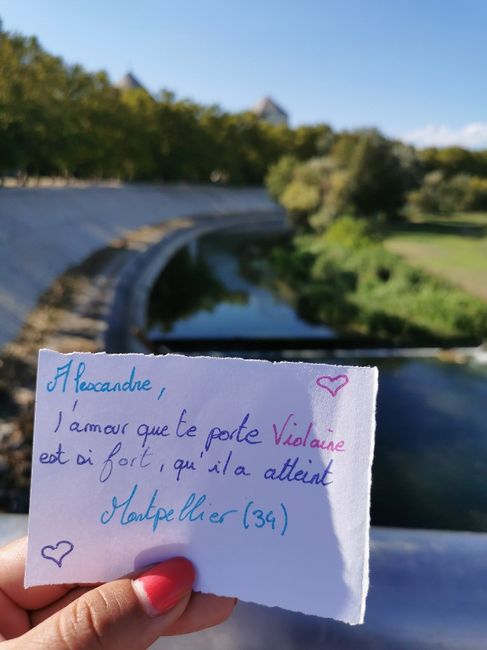 Alexandre,
j'amour que te porte Violaine
est si fort, qu'il a atteint
Montpellier (34)